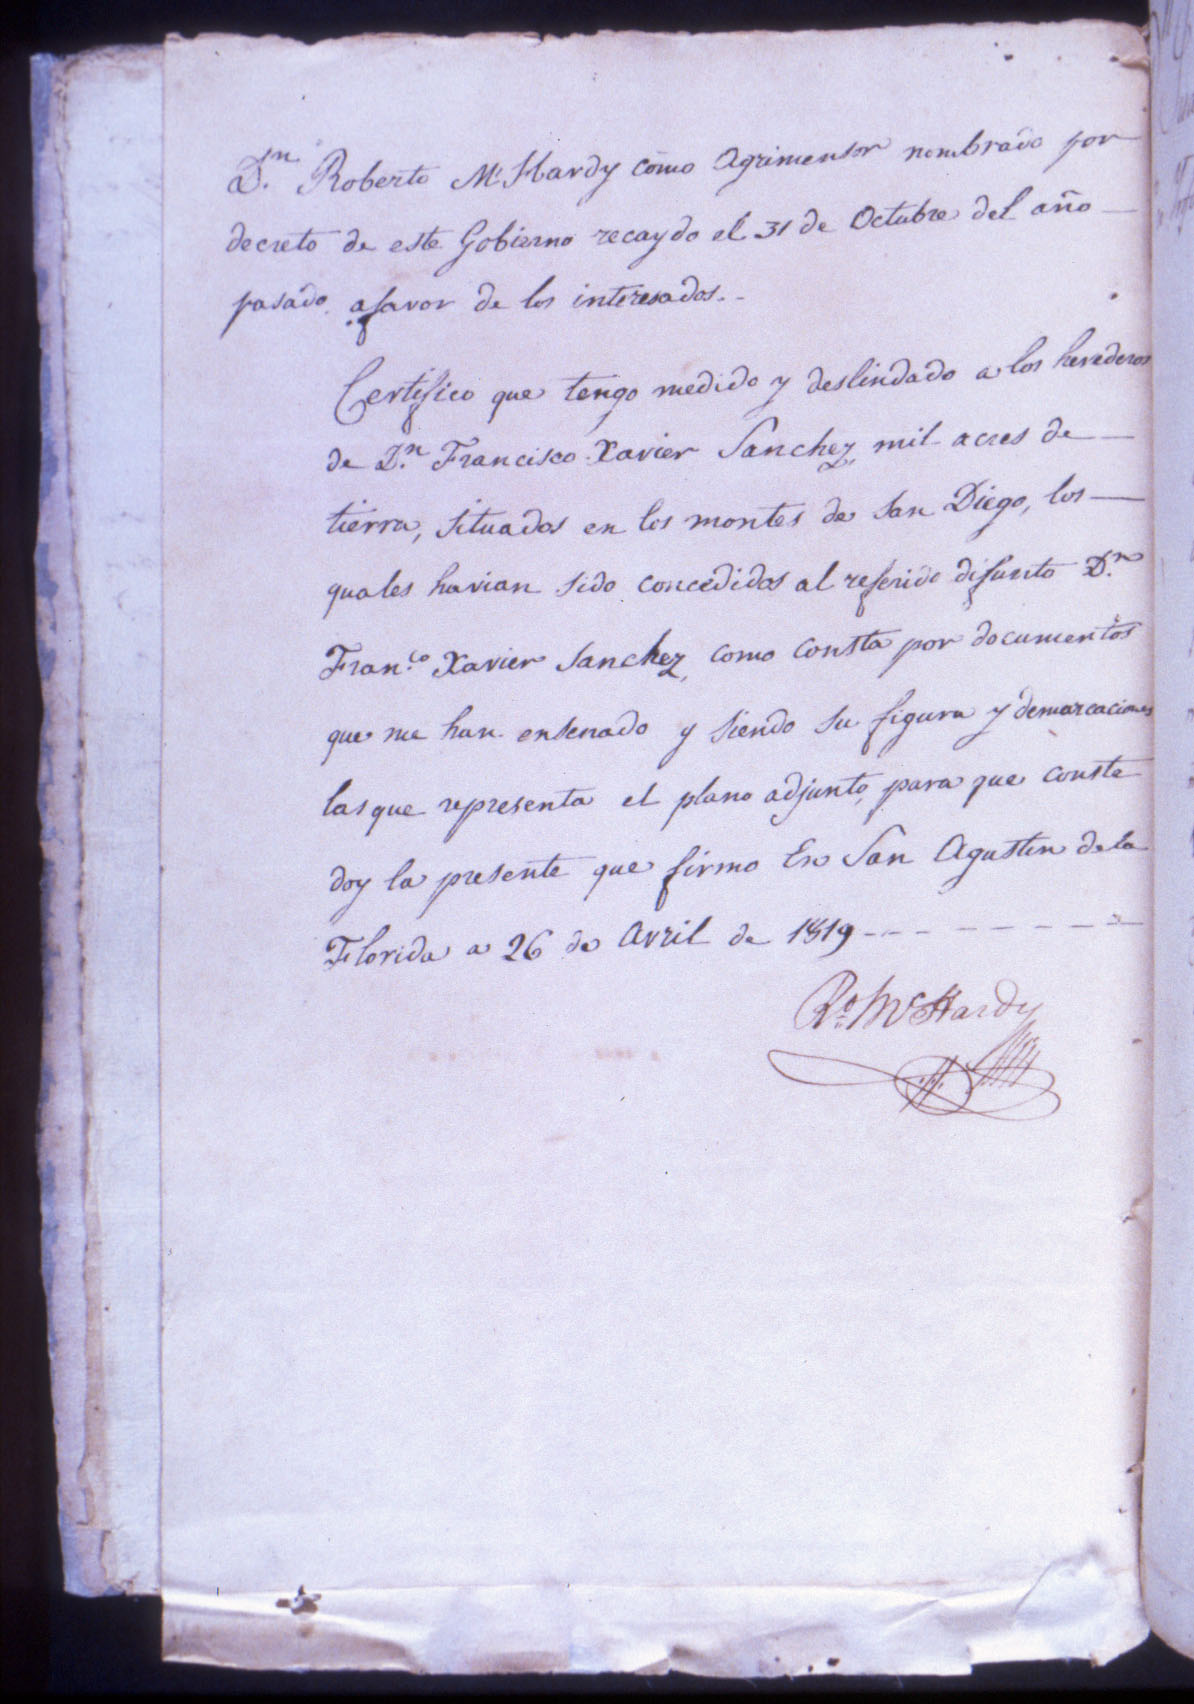 Dn. Roberto Mc Hardy como Agrimensor nombrado por
decreto de este Gobierno recaydo el 31 de Octubre del año
pasado afavor de los interesados.
Certifico que tengo medido y deslindado a los herederos
de Dn. Francisco Xavier Sanchez, mil acres de
tierra, situados en los montes de San Diego, los
quales havian sido concedidos al referido difunto Dn.
Franco. Xavier Sanchez, como consta por documentos
que me han ensenado y siendo su figura y demarcaciones
las que representa el plano adjunto, para que conste
doy la presente que firmo En San Agustin de la
Florida a 26 de Avril de 1819
Ro. McHardy